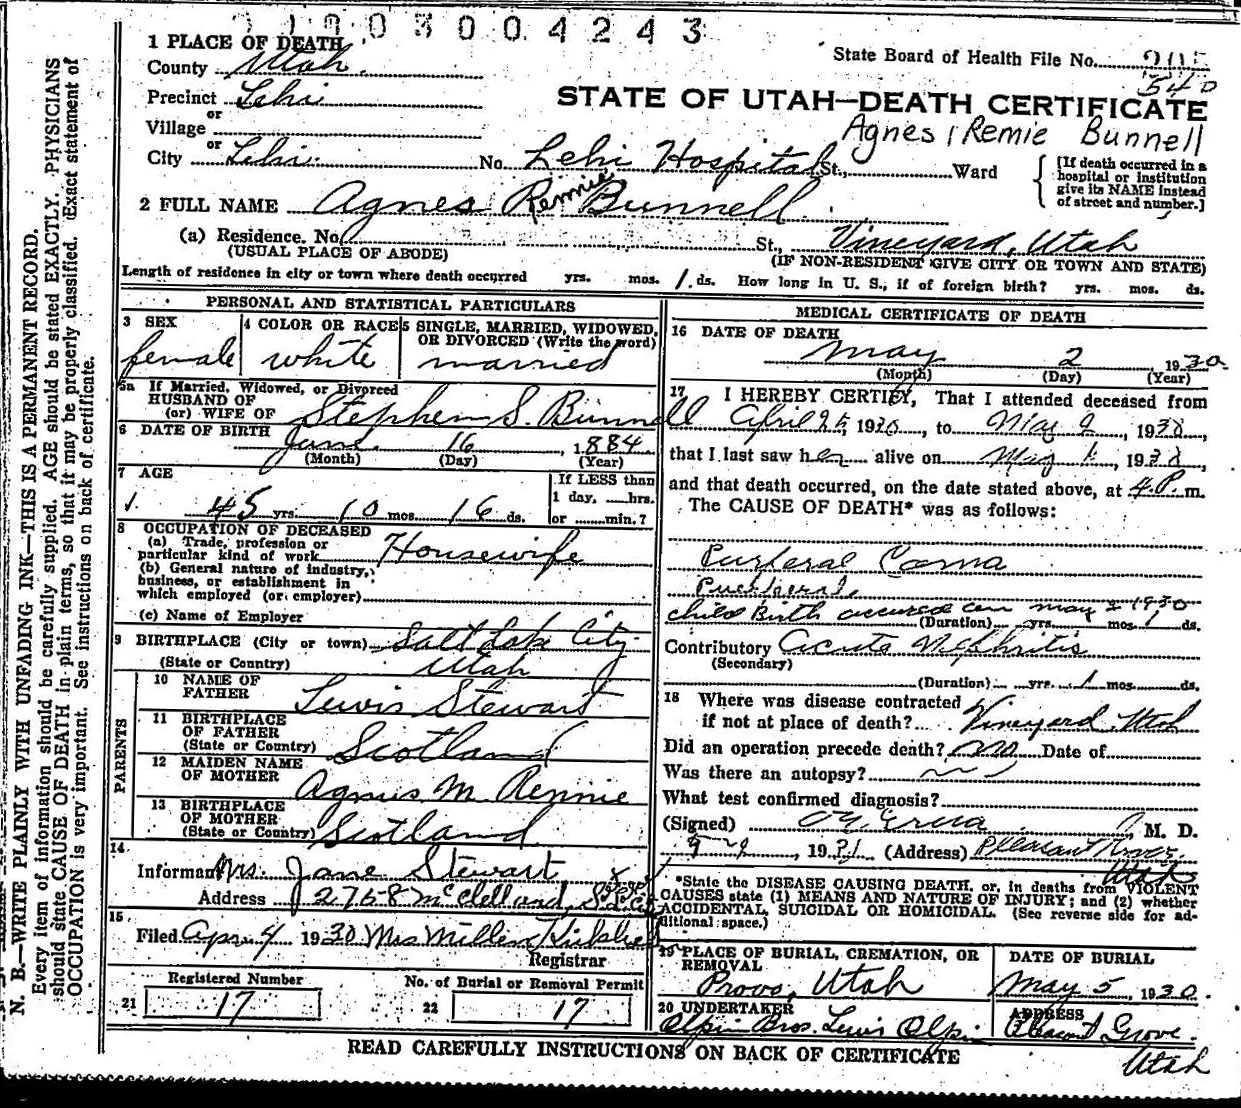 1903004243
1 PLACE OF DEATH
County Utah.
State Board of Health File No.
540
Precinct Lehi
STATE OF UTAH—DEATH CERTIFICATE
or
Village
Agnes Remie Bunnell
or
City Lehi No. Lehi Hospital St., Ward
[If death occurred in a hospital or institution give its NAME instead of street and number.]
2 FULL NAME Agnes Rennie Bunnell
(a) Residence. No. St., Vineyard, Utah
(USUAL PLACE OF ABODE) (IF NON-RESIDENT GIVE CITY OR TOWN AND STATE)
Length of residence in city or town where death occurred yrs. mos. 1 ds. How long in U. S., if of foreign birth? yrs. mos. ds.
PERSONAL AND STATISTICAL PARTICULARS
3 SEX 4 COLOR OR RACE 5 SINGLE, MARRIED, WIDOWED, OR DIVORCED (Write the word)
female white married
5a If Married, Widowed, or Divorced
HUSBAND OF
(or) WIFE OF Stephen S. Bunnell
6 DATE OF BIRTH June 16, 1884
(Month) (Day) (Year)
7 AGE If LESS than
1 day, hrs.
45 yrs. 10 mos. 16 ds. or min.?
8 OCCUPATION OF DECEASED
(a) Trade, profession or
particular kind of work Housewife
(b) General nature of industry,
business, or establishment in
which employed (or employer)
(c) Name of Employer
9 BIRTHPLACE (City or town) Salt Lake City
(State or Country) Utah
PARENTS
10 NAME OF FATHER Lewis Stewart
11 BIRTHPLACE OF FATHER (State or Country) Scotland
12 MAIDEN NAME OF MOTHER Agnus M Rennie
13 BIRTHPLACE OF MOTHER (State or Country) Scotland
14
Informant Mrs. Jane Stewart
Address 2758 McClelland, S.L. City
15
Filed Apr 4 1930 Mrs
Registrar
Registered Number No. of Burial or Removal Permit
21 17 22 17
MEDICAL CERTIFICATE OF DEATH
16 DATE OF DEATH
May 2 1930
(Month) (Day) (Year)
17 I HEREBY CERTIFY, That I attended deceased from
April 25, 1930, to May 2, 1930,
that I last saw her alive on May 1, 1930,
and that death occurred, on the date stated above, at 4 P. m.
The CAUSE OF DEATH* was as follows:
Coma
child Birth occured on may 1930
(Duration) yrs. mos. 1 ds.
Contributory Acute Nephritis
(Secondary)
(Duration) yrs. 1 mos. ds.
18 Where was disease contracted
if not at place of death? Vineyard, Utah
Did an operation precede death? no Date of
Was there an autopsy?
What test confirmed diagnosis?
(Signed) M. D.
, 19 (Address) Pleasant Grove, Utah
*State the DISEASE CAUSING DEATH, or, in deaths from VIOLENT
CAUSES state (1) MEANS AND NATURE OF INJURY; and (2) whether
ACCIDENTAL, SUICIDAL OR HOMICIDAL. (See reverse side for ad-
ditional space.)
19 PLACE OF BURIAL, CREMATION, OR REMOVAL DATE OF BURIAL
Provo, Utah May 5, 1930.
20 UNDERTAKER ADDRESS
Olpin Bros. Lewis Olpin Pleasant Grove.
Utah
READ CAREFULLY INSTRUCTIONS ON BACK OF CERTIFICATE
N. B.—WRITE PLAINLY WITH UNFADING INK—THIS IS A PERMANENT RECORD.
Every item of information should be carefully supplied. AGE should be stated EXACTLY. PHYSICIANS
should state CAUSE OF DEATH in plain terms, so that it may be properly classified. Exact statement of
OCCUPATION is very important. See instructions on back of certificate.